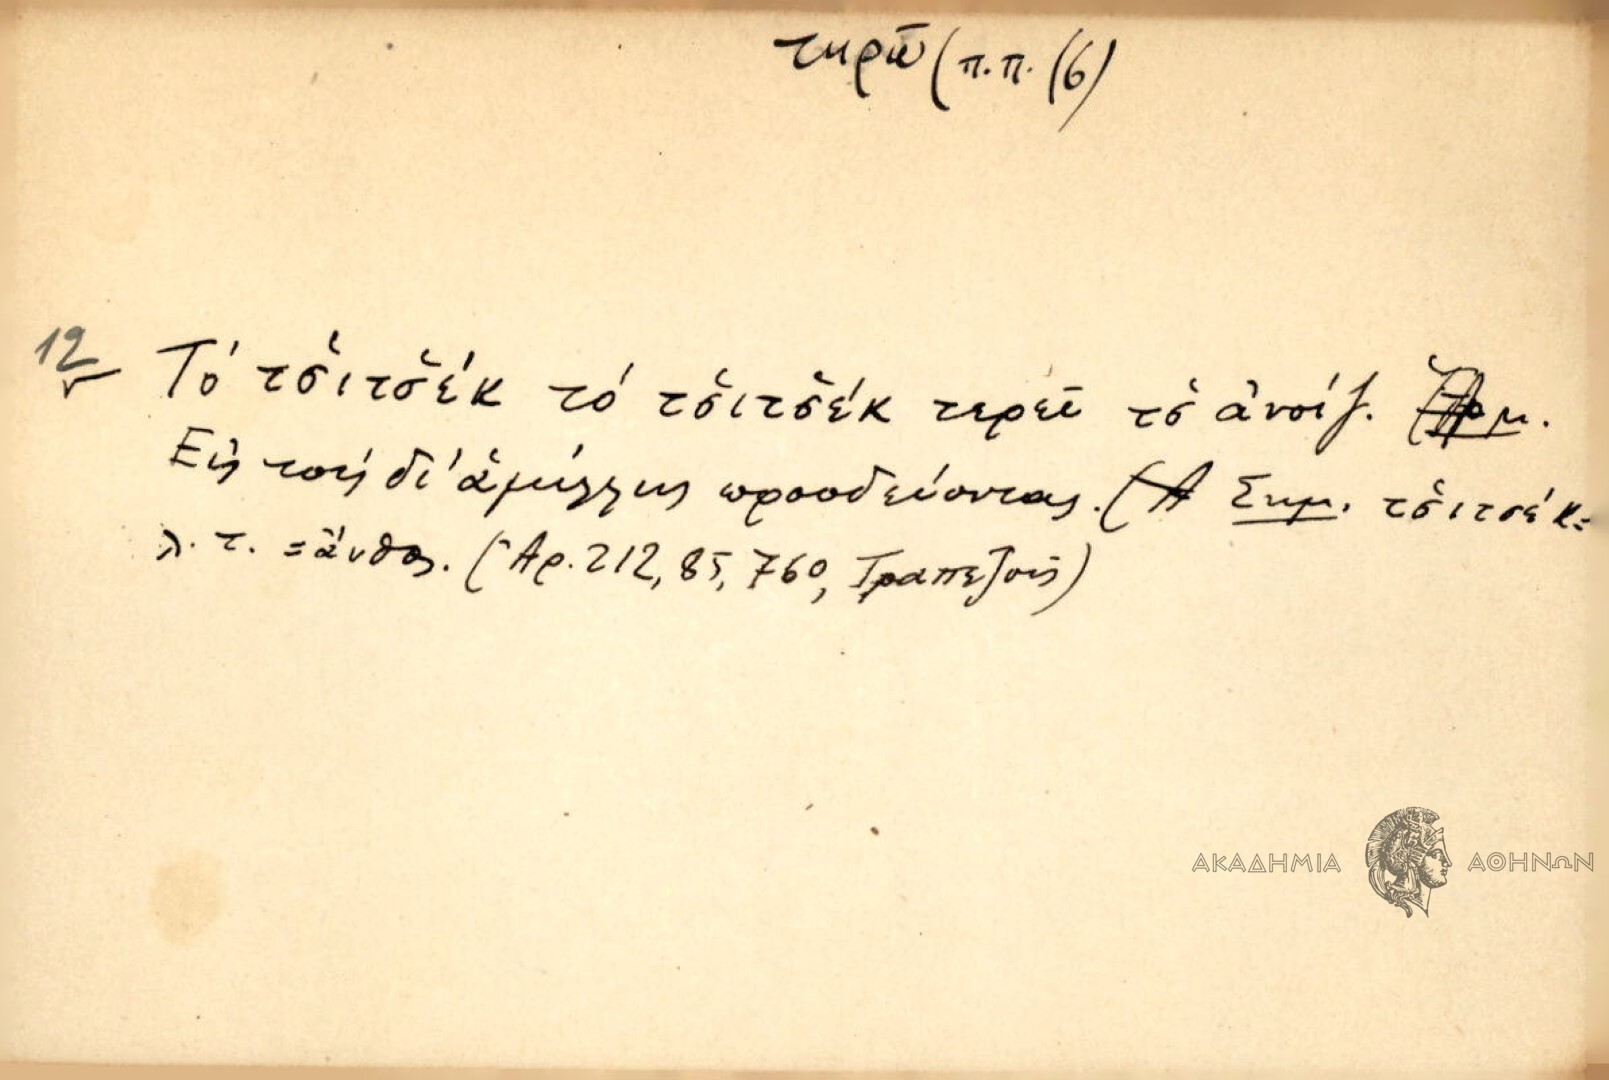 τηρῶ (π.π. (6)
12 Τό τσ̌ιτσ̌έκ τό τσ̌ιτσ̌έκ τερεῖ τσ̌ ἀνοίζ.
Εἰς τούς δι' ἁμίλλης προοδεύοντας. (Σημ. τσ̌ιτσέκ=
λ. τ. = ἄνθος. (Ἀρ. 212, 85, 760, Τραπεζοῦς)
ΑΚΑΔΗΜΙΑ ΑΘΗΝΩΝ